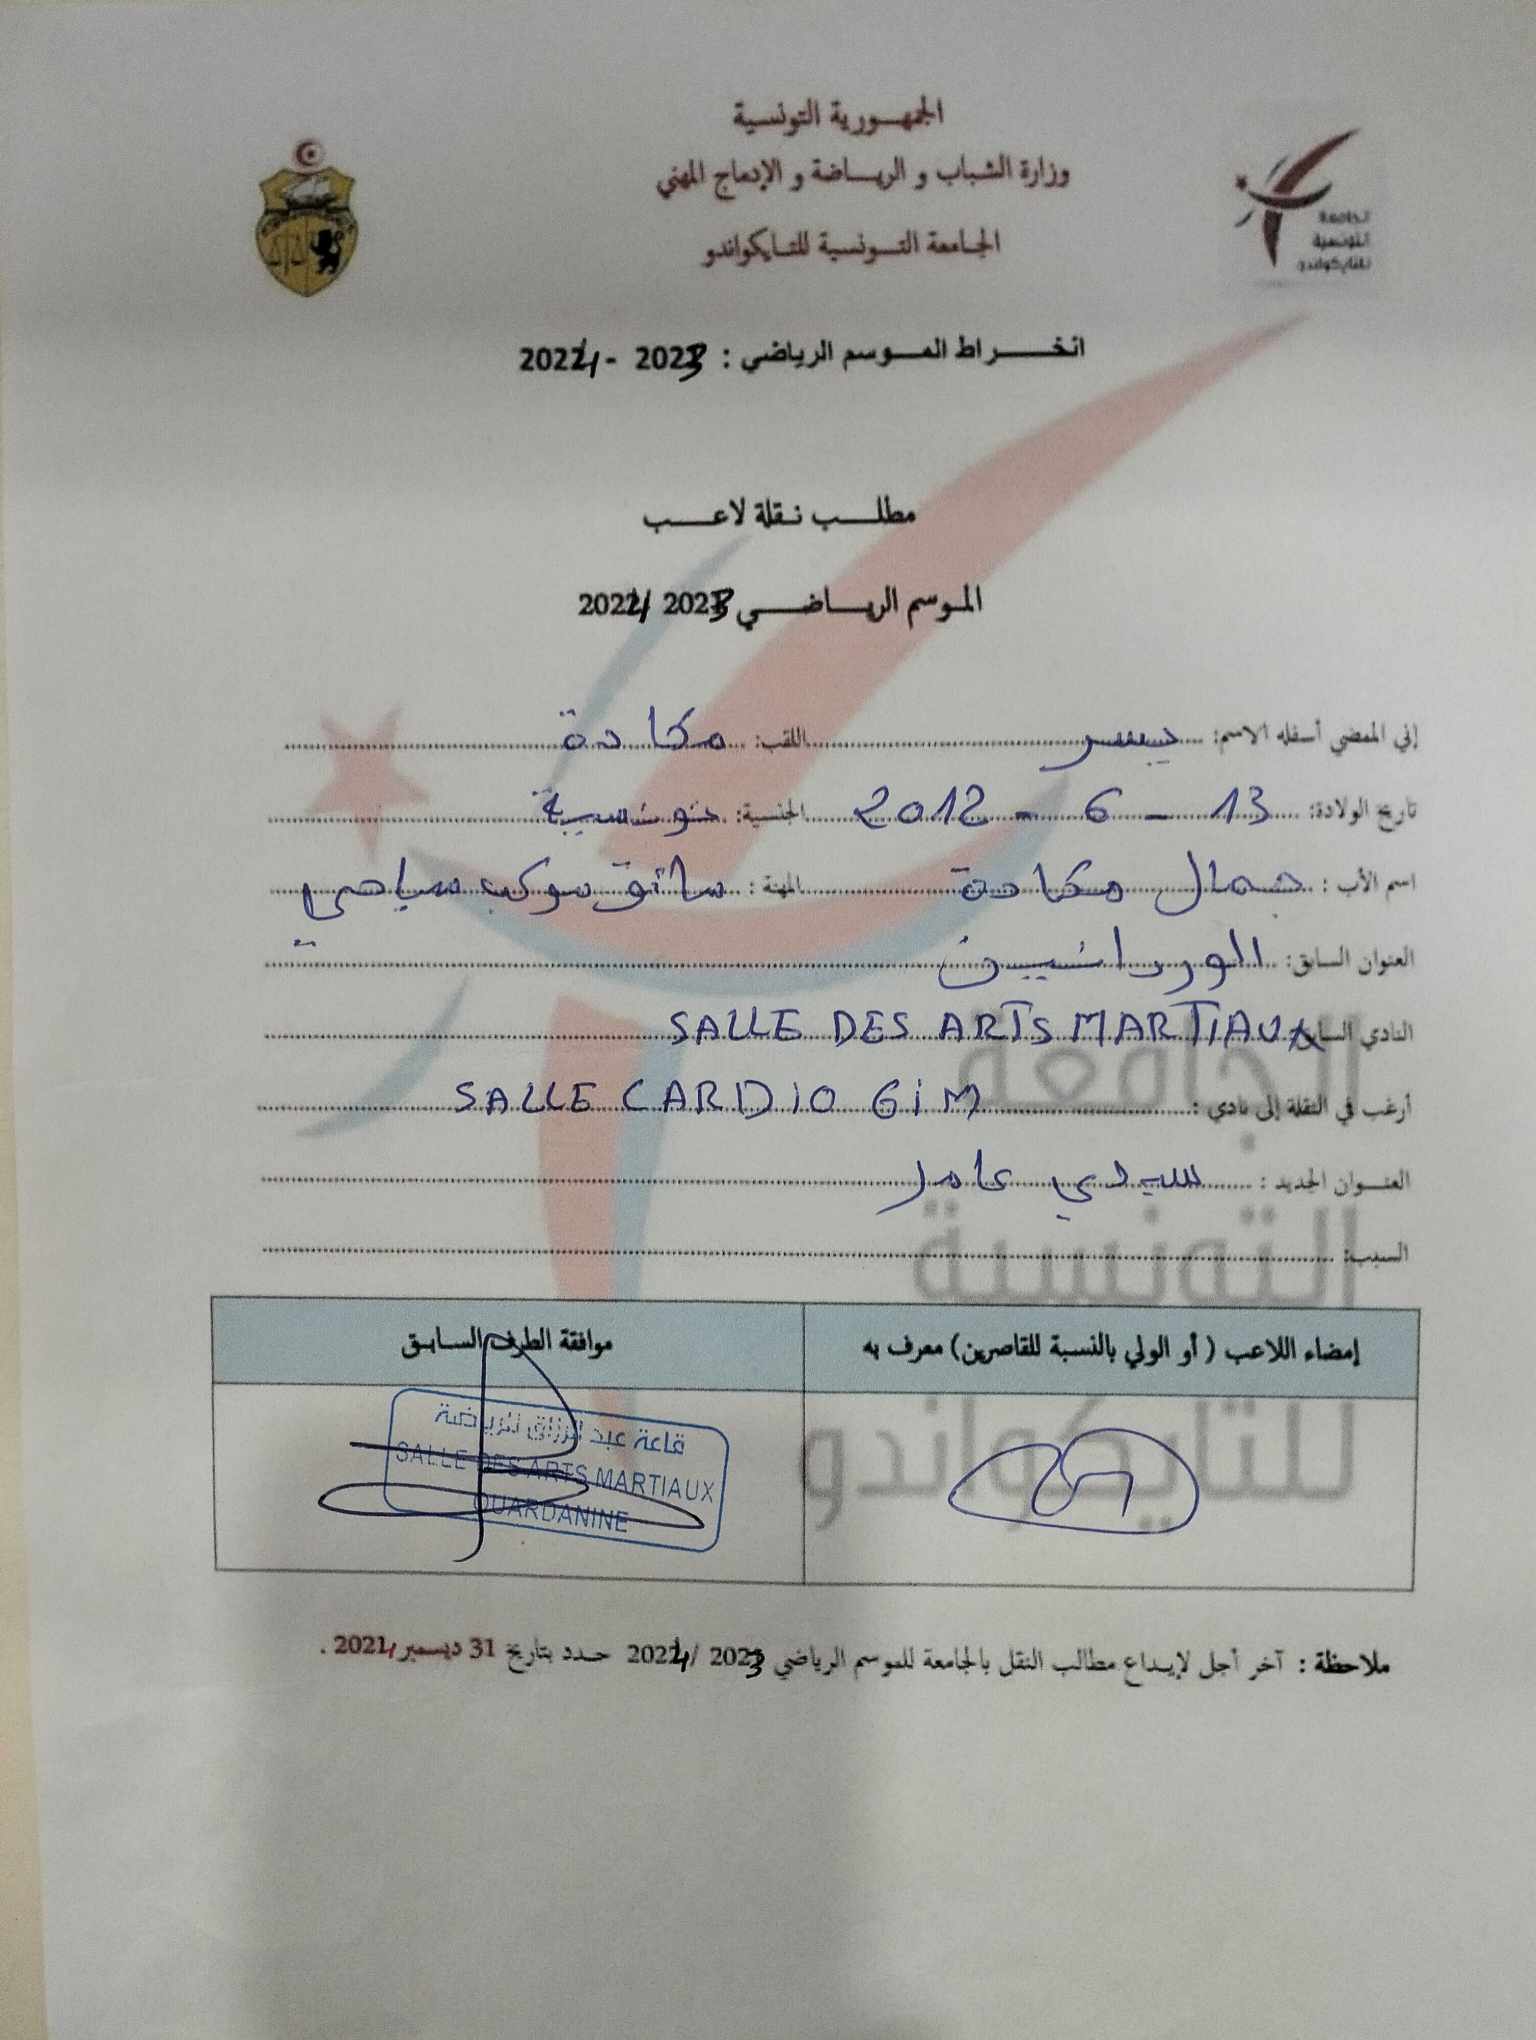 الجمهورية التونسية
وزارة الشباب و الرياضة و الإدماج المهني
الجامعة التونسية للتايكواندو
الجامعة
التونسية
للتايكواندو
انخراط الموسم الرياضي : 2023 - 2024
مطلب نقلة لاعب
الموسم الرياضي 2023 / 2024
إني الممضي أسفله الاسم: يسر اللقب: مكادة
تاريخ الولادة: 13 - 6 - 2012 الجنسية: تونسية
اسم الأب : جمال مكادة المهنة : سائق سياحي
العنوان السابق: الوردانين
النادي السابق SALLE DES ARTS MARTIAUX
أرغب في النقلة إلى نادي : SALLE CARDIO GIM
العنوان الجديد : سيدي عامر
السبب:
إمضاء اللاعب ( أو الولي بالنسبة للقاصرين) معرف به
موافقة الطرف السابق
قاعة عبد الرزاق للرياضة
SALLE DES ARTS MARTIAUX
OUARDANINE
الجامعة
التونسية
للتايكواندو
ملاحظة : آخر أجل لإيداع مطالب النقل بالجامعة للموسم الرياضي 2023 / 2024 حدد بتاريخ 31 ديسمبر 2021 .